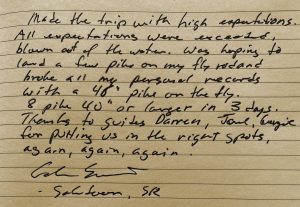 Made the trip with high expectations.
All expectations were exceeded,
blown out of the water. Was hoping to
land a few pike on my fly rod and
broke all my personal records
with a 48" pike on the fly.
8 pike 40" or larger in 3 days.
Thanks to guides Darren, Joul,
for putting us in the right spots,
again, again, again.
SR